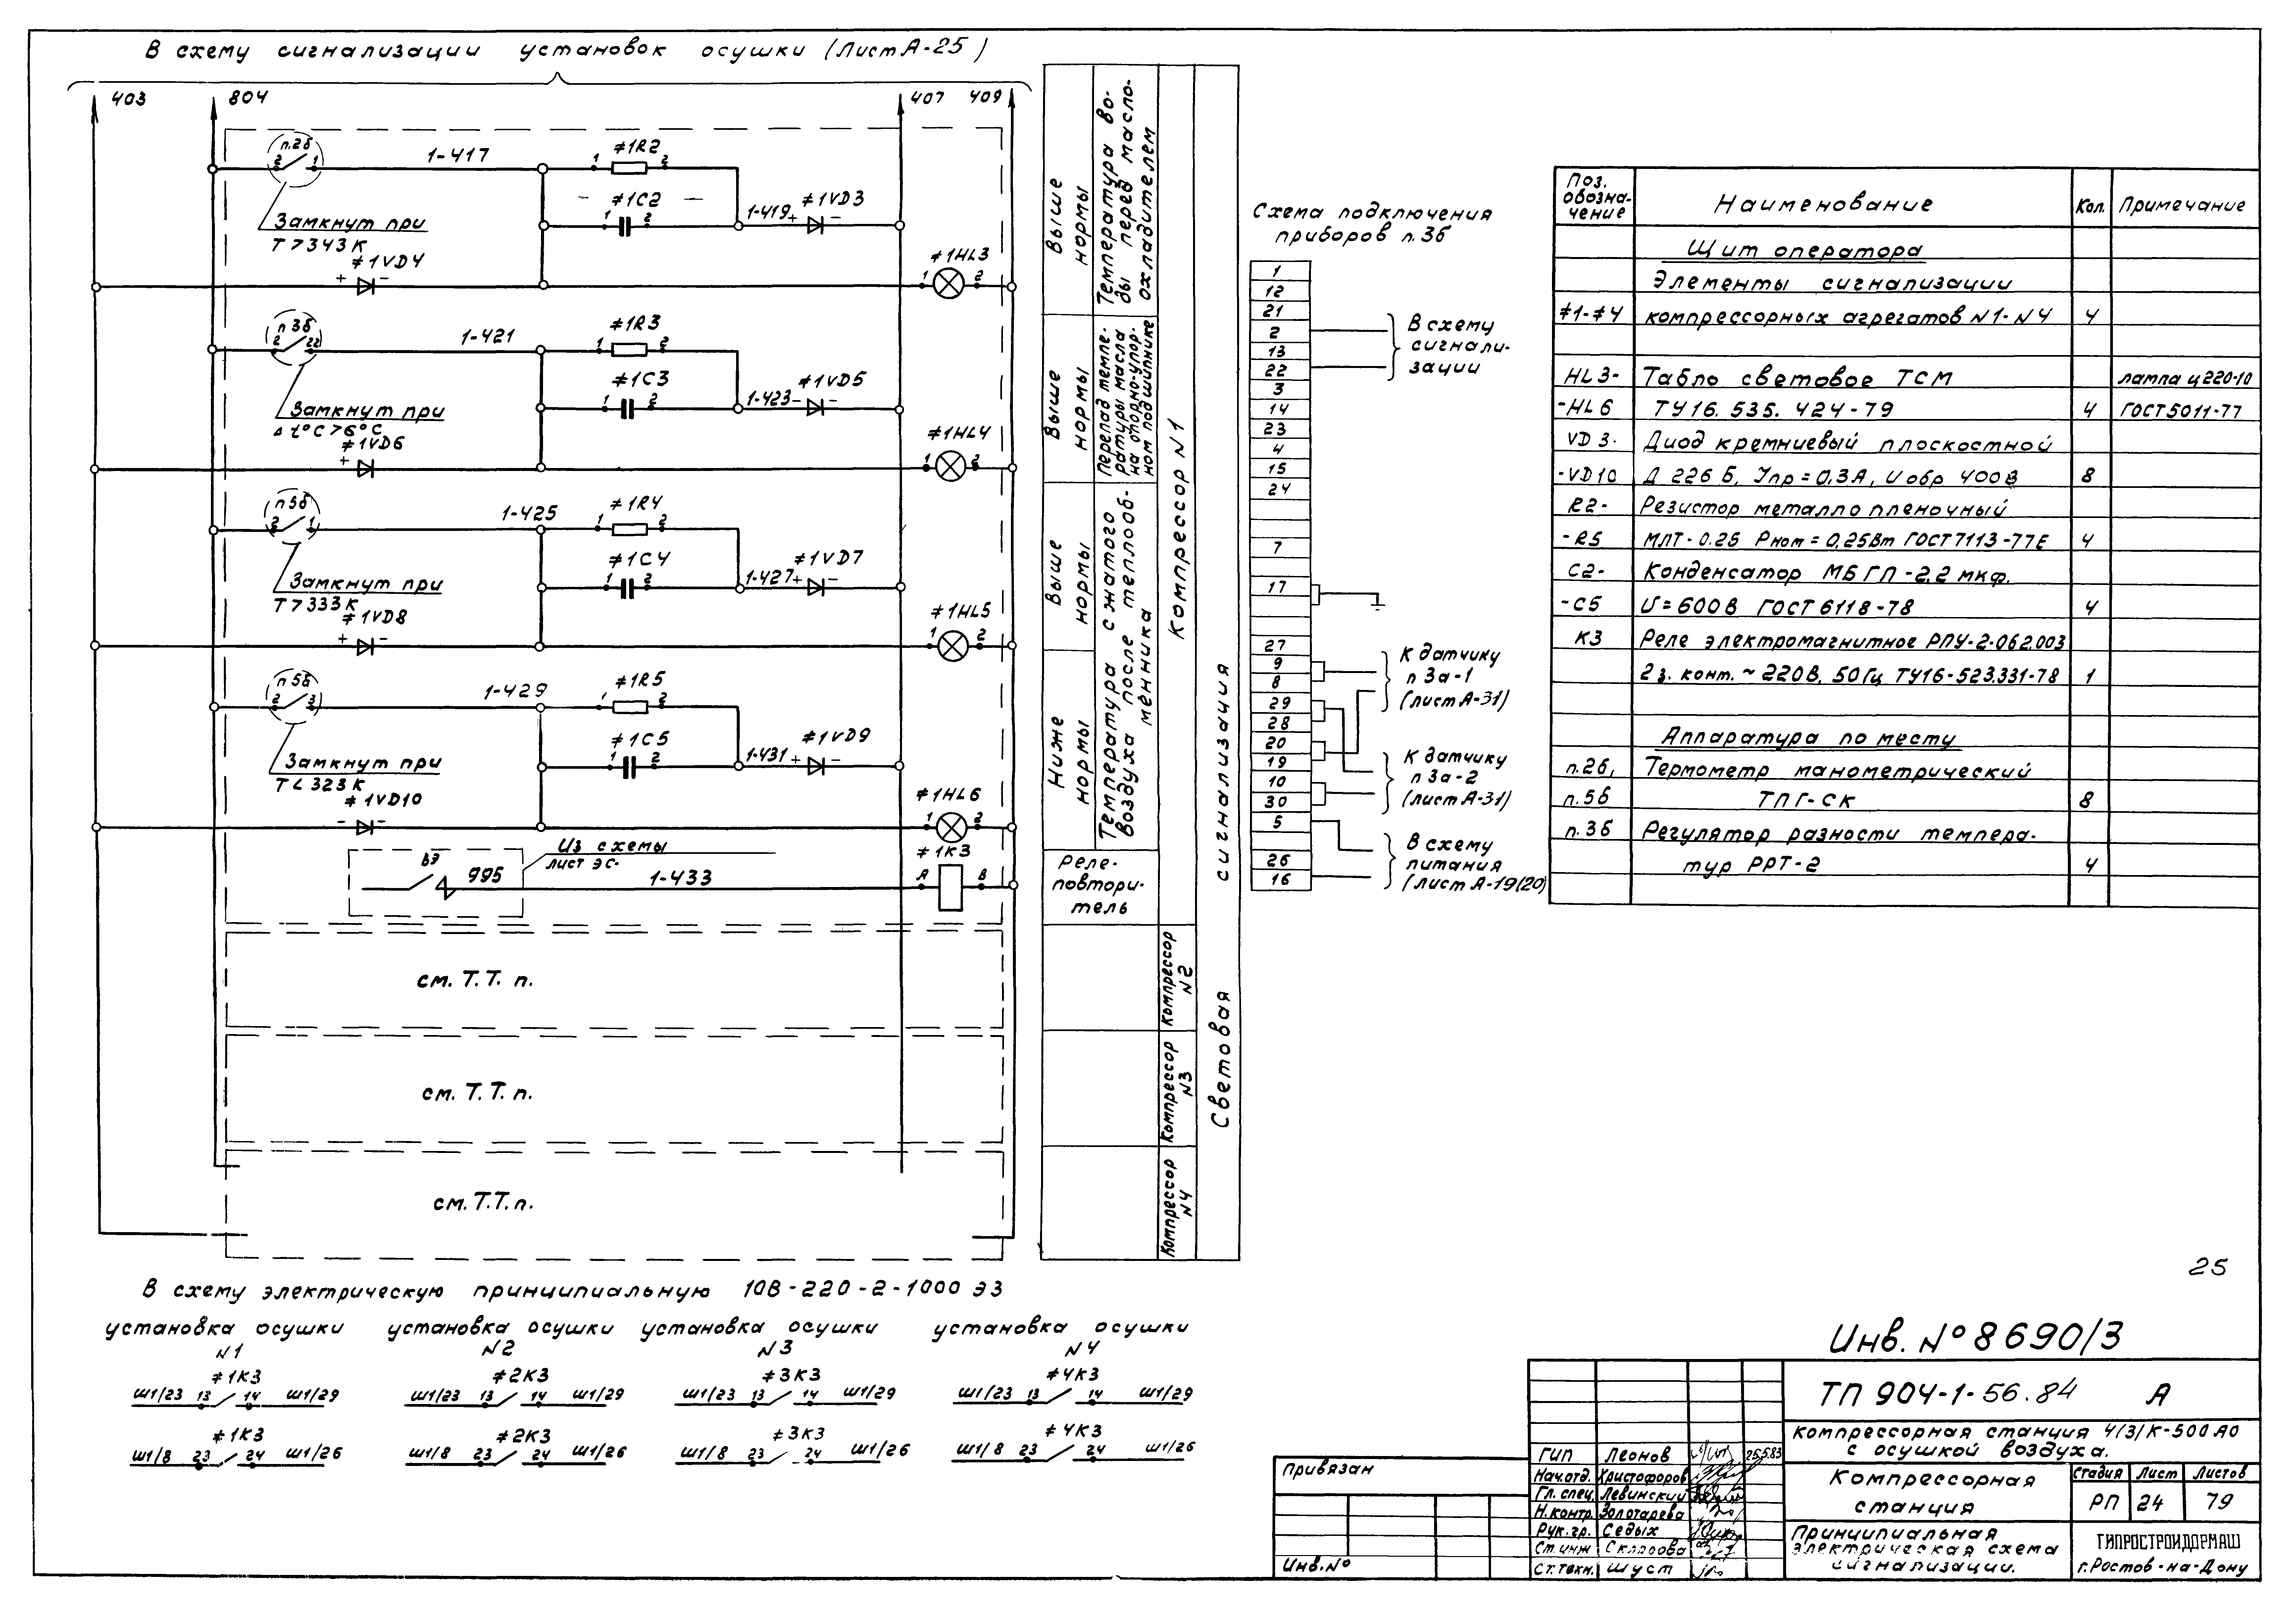 В схему сигнализации установок осушки (Лист А-25)
403
804
407
409
п.2б
2 1
1-417
≠1R2
1 2
≠1C2
1 2
1-419
+ ≠1VD3 -
Замкнут при
T>343K
+ ≠1VD4 -
≠1HL3
1 2
п 3б
2 22
1-421
≠1R3
1 2
≠1C3
1 2
1-423
- ≠1VD5 -
Замкнут при
Δt°C>6°C
+ ≠1VD6
≠1HL4
1 2
п 5б
2 1
1-425
≠1R4
1 2
≠1C4
1 2
1-427
+ ≠1VD7
Замкнут при
T>333K
+ ≠1VD8 -
≠1HL5
1 2
п 5б
2 3
1-429
≠1R5
1 2
≠1C5
1 2
1-431
+ ≠1VD9 -
Замкнут при
T<323K
- ≠1VD10 -
≠1HL6
1 2
ВЭ
995
Из схемы
лист ЭС-
1-433
≠1К3
А В
см. Т.Т. п.
см. Т. Т. п.
см. Т.Т. п.
Выше нормы
Температура воды перед маслоохладителем
Выше нормы
Перепад температуры масла на опорно-упорном подшипнике
Выше нормы
Ниже нормы
Температура сжатого воздуха после теплообменника
Реле-
повтори-
тель
Компрессор N1
Компрессор N2
Компрессор N3
Компрессор N4
Световая сигнализация
Схема подключения
приборов п.3б
1
12
21
2
13
22
3
14
23
4
15
24
7
17
27
9
8
29
28
20
19
10
30
5
26
16
В схему
сигнали-
зации
К датчику
п 3а-1
(лист А-31)
К датчику
п 3а-2
(лист А-31)
В схему
питания
(лист А-19(20)
Поз. обозна-чение Наименование Кол. Примечание
Щит оператора
Элементы сигнализации
≠1-≠4 компрессорных агрегатов N1-N4 4
HL3- Табло световое ТСМ лампа Ц220-10
-HL6 ТУ16. 535. 424-79 4 ГОСТ5011-77
VD3- Диод кремниевый плоскостной
-VD10 Д 226 Б, Iпр=0,3А, U обр 400В 8
R2- Резистор металлопленочный
-R5 МЛТ-0.25 Рном=0,25Вт ГОСТ7113-77Е 4
С2- Конденсатор МБГП-2,2 мкф.
-С5 U=600В ГОСТ 6118-78 4
К3 Реле электромагнитное РПУ-2-062.003
2 з. конт. ~220В, 50Гц ТУ16-523.331-78 1
Аппаратура по месту
п.2б, Термометр манометрический
п.5б ТПГ-СК 8
п.3б Регулятор разности темпера-
тур РРТ-2 4
В схему электрическую принципиальную 10В-220-2-1000 ЭЗ
установка осушки N1
установка осушки N2
установка осушки N3
установка осушки N4
≠1К3 ≠2К3 ≠3К3 ≠4К3
Ш1/23 13 14 Ш1/29 Ш1/23 13 14 Ш1/29 Ш1/23 13 14 Ш1/29 Ш1/23 13 14 Ш1/29
≠1К3 ≠2К3 ≠3К3 ≠4К3
Ш1/8 23 24 Ш1/26 Ш1/8 23 24 Ш1/26 Ш1/8 23 24 Ш1/26 Ш1/8 23 24 Ш1/26
25
Инв. №8690/3
ТП 904-1-56.84 А
Компрессорная станция 4/3/К-500 АО
с осушкой воздуха.
Компрессорная
станция
Стадия Лист Листов
РП 24 79
Принципиальная
электрическая схема
сигнализации.
ГИПРОСТРОЙДОРМАШ
г.Ростов-на-Дону
ГИП Леонов 25.5.83
Нач.отд. Христофоров
Гл. спец. Левинский
Н.контр. Золотарева
Рук.гр. Седых
Ст.инж
Ст.техн. Шуст
Привязан
Инв.№